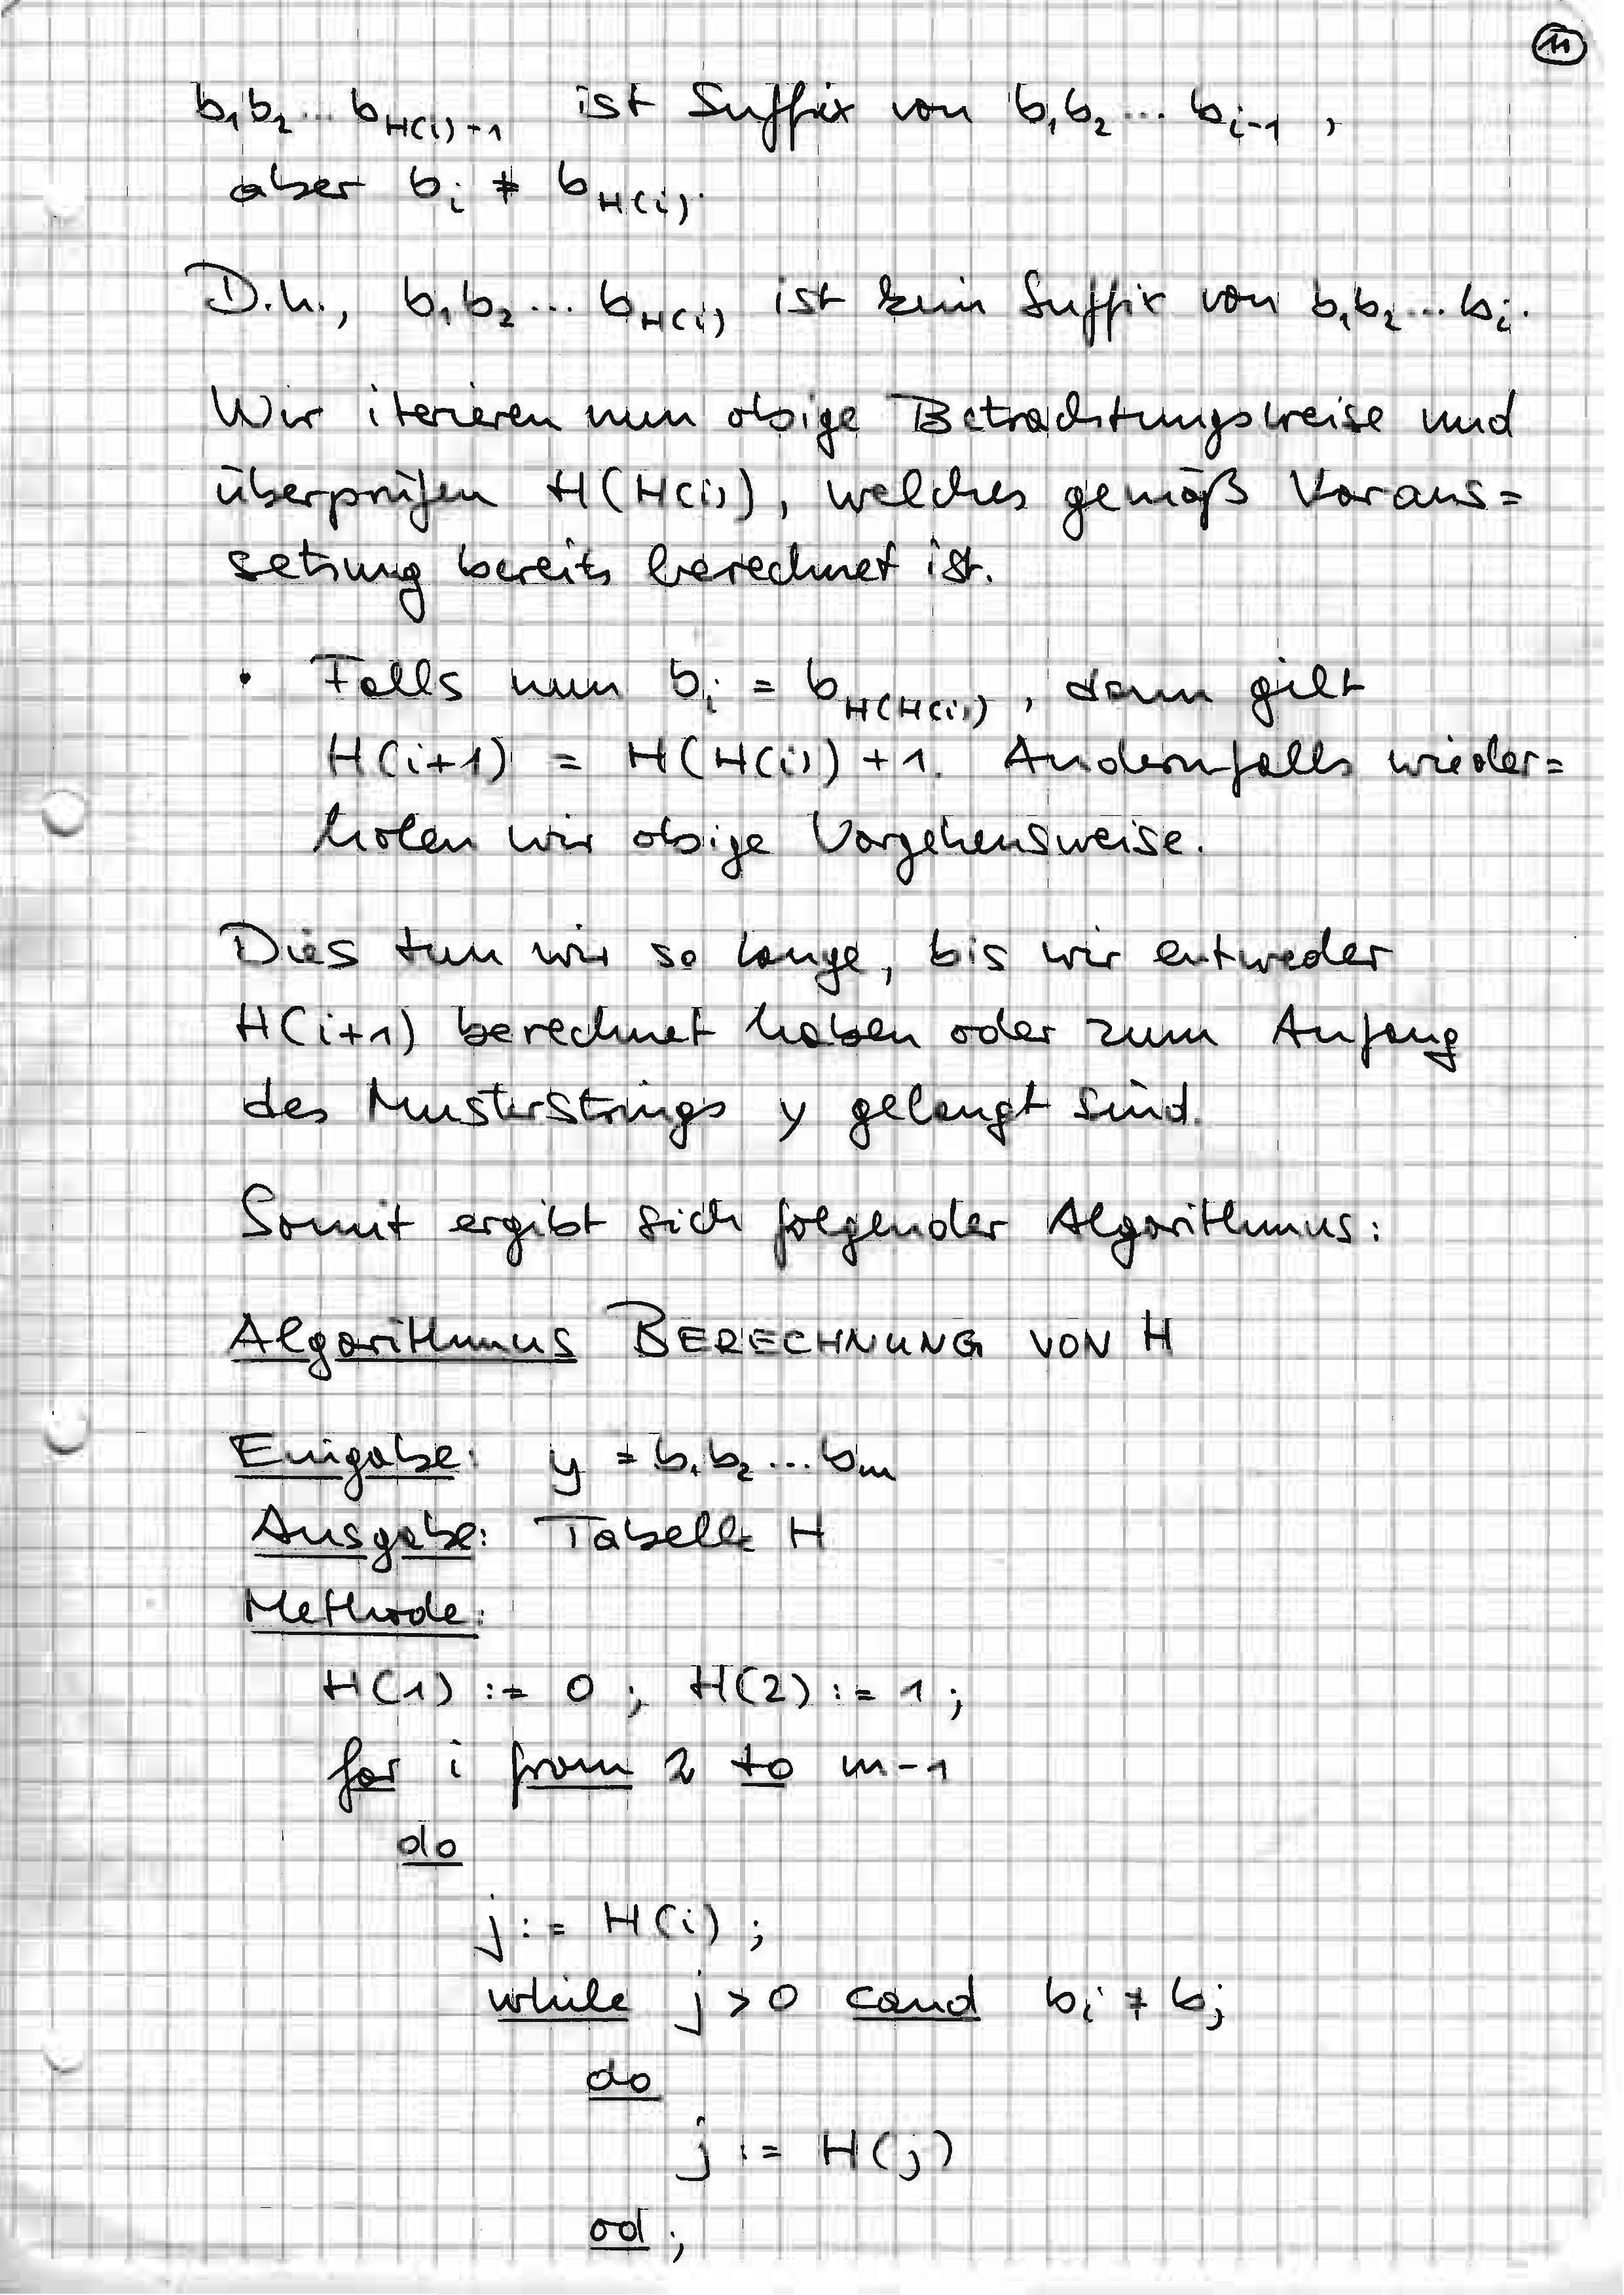 11
b₁b₂...b_{H(i)-1} ist Suffix von b₁b₂...b_{i-1},
aber b_i ≠ b_{H(i)}.
D.h., b₁b₂...b_{H(i)} ist kein Suffix von b₁b₂...b_i.
Wir iterieren nun obige Betrachtungsweise und
überprüfen H(H(i)), welches gemäß Voraus=
setzung bereits berechnet ist.
• Falls nun b_i = b_{H(H(i))}, dann gilt
H(i+1) = H(H(i))+1. Andernfalls wieder=
holen wir obige Vorgehensweise.
Dies tun wir so lange, bis wir entweder
H(i+1) berechnet haben oder zum Anfang
des Musterstrings y gelangt sind.
Somit ergibt sich folgender Algorithmus:
Algorithmus BERECHNUNG VON H
Eingabe: y = b₁b₂...b_m
Ausgabe: Tabelle H
Methode:
H(1) := 0; H(2) := 1;
for i from 2 to m-1
do
j := H(i);
while j > 0 cand b_i ≠ b_j
do
j := H(j)
od;